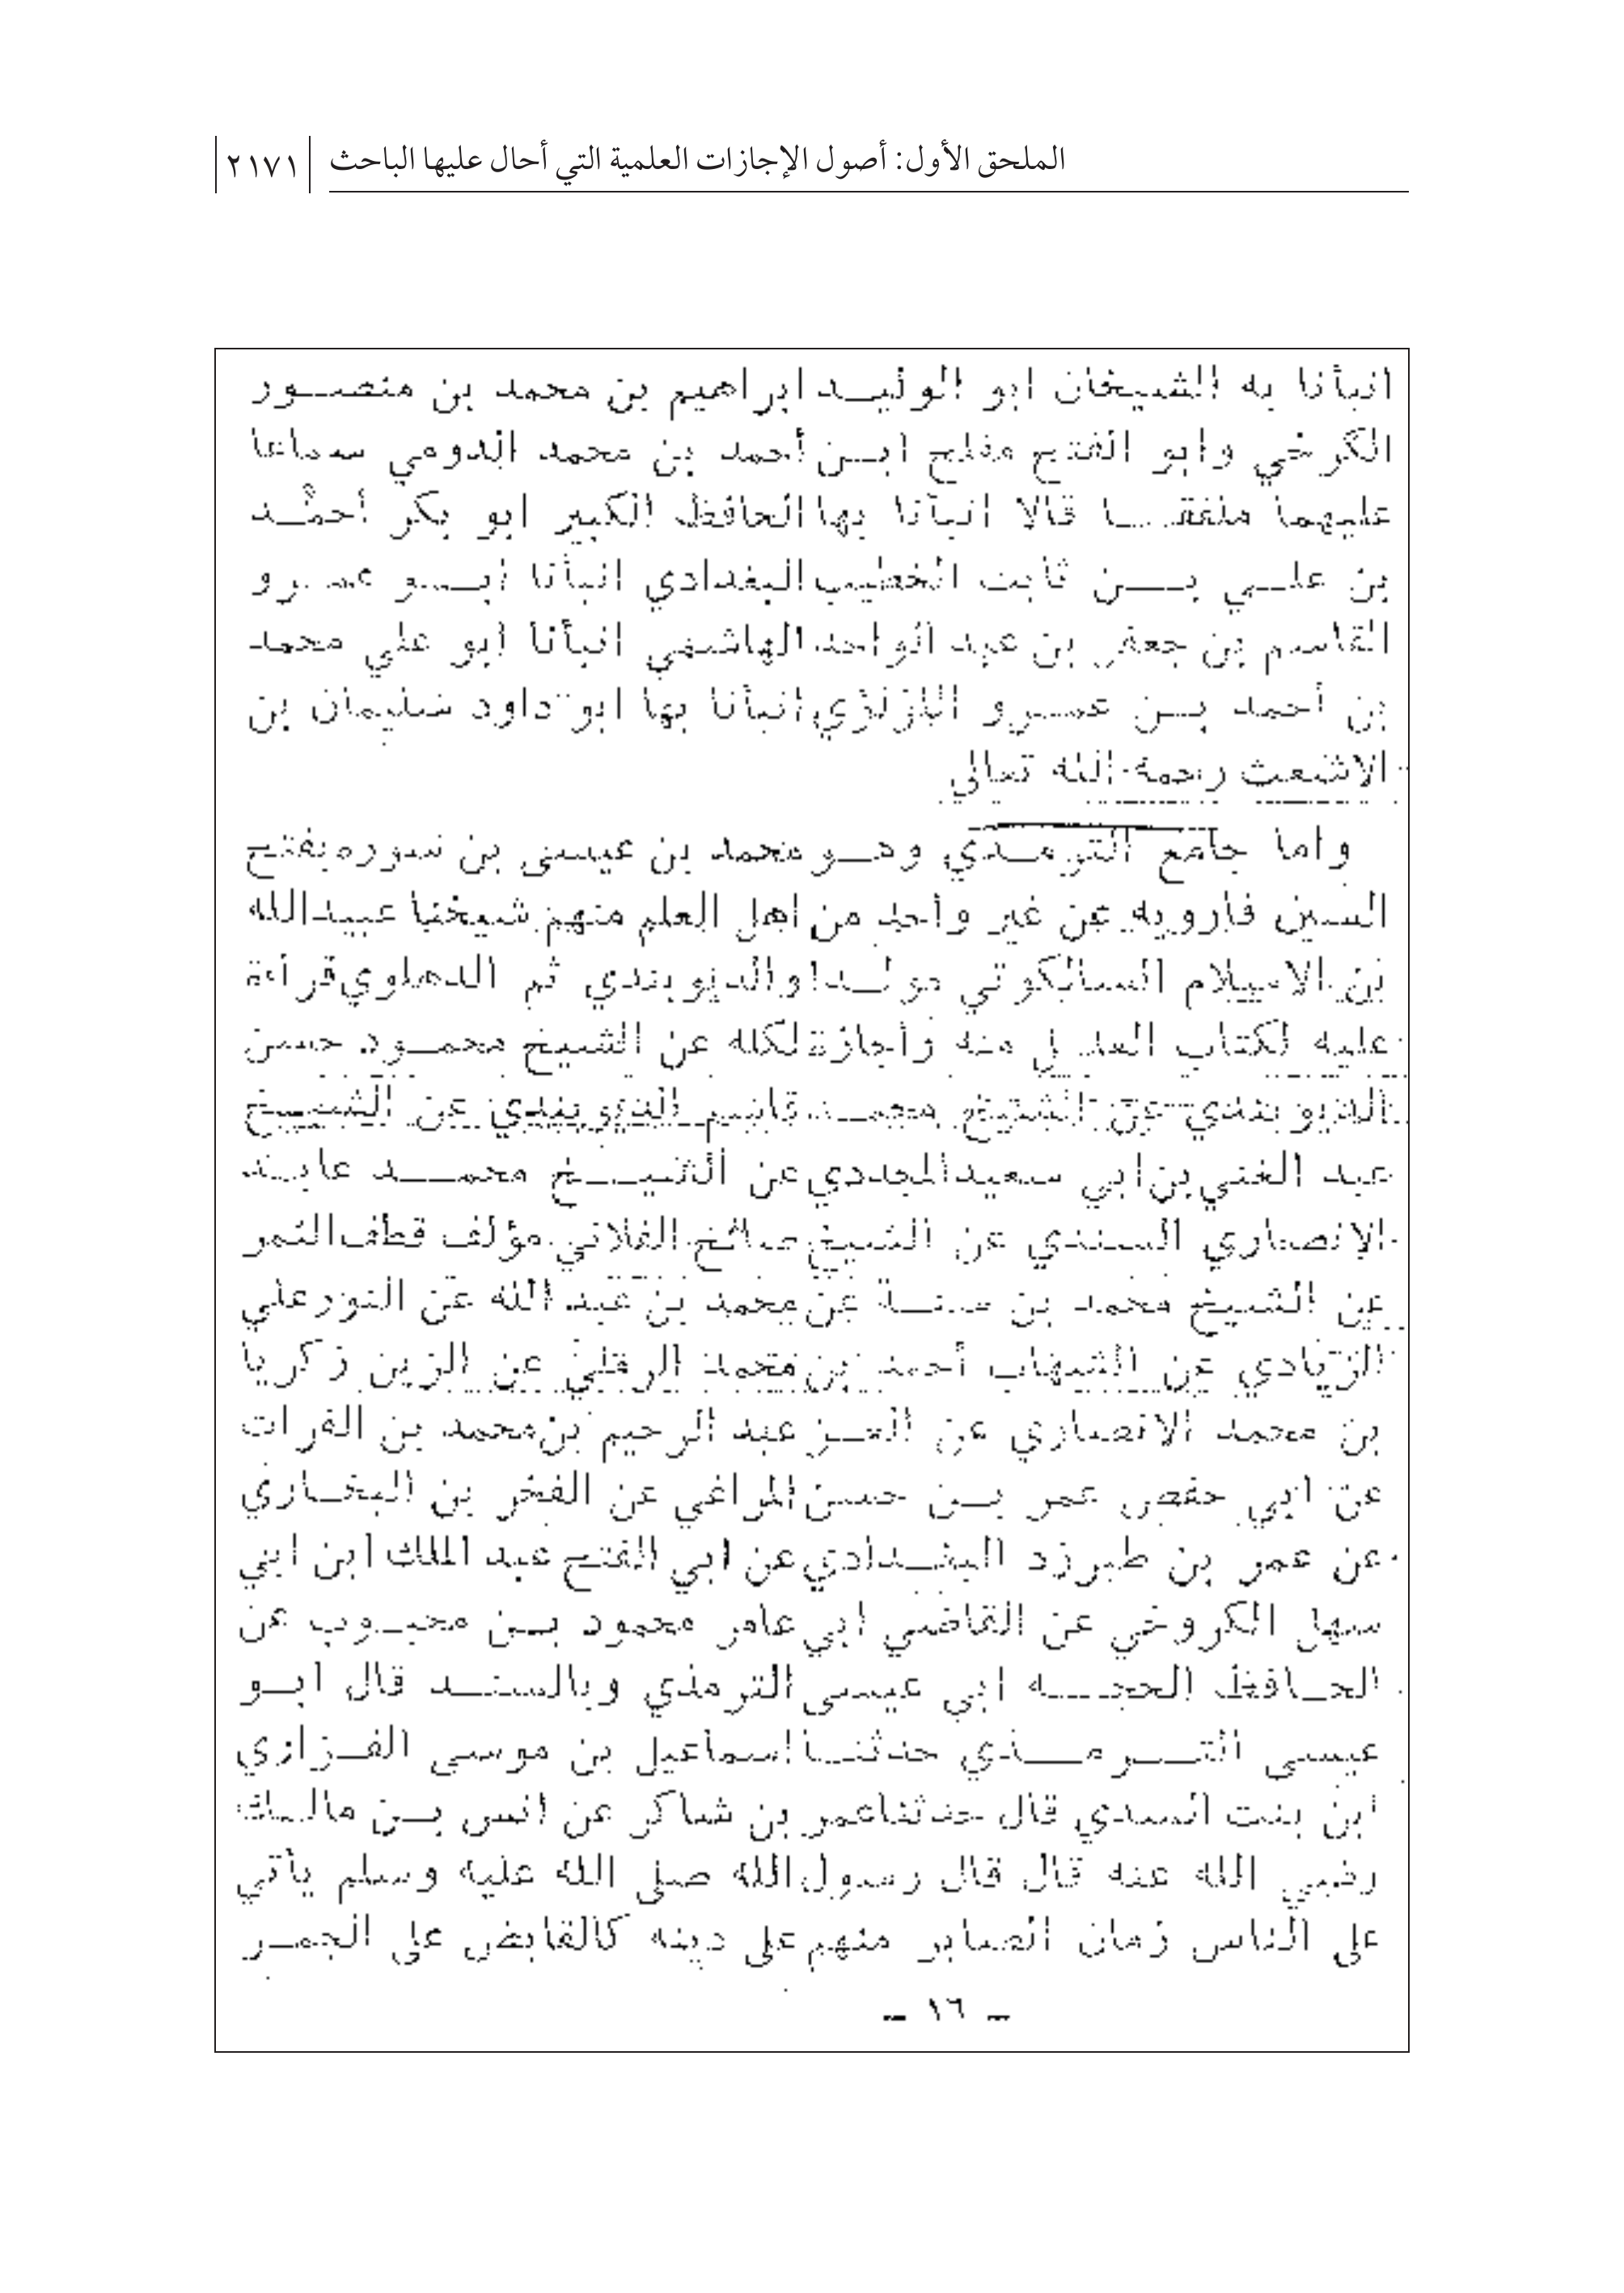 الملحق الأول: أصول الإجازات العلمية التي أحال عليها الباحث
٢١٧١
انبأنا به الشيخان ابو الوليد ابراهيم بن محمد بن منصور
الكرخي وابو الفتح مفلح ابن أحمد بن محمد الدومي سماعا
عليهما ملفقا قالا انبأنا بها الحافظ الكبير ابو بكر أحمد
بن علي بن ثابت الخطيب البغدادي انبأنا ابو عمرو
القاسم بن جعفر بن عبد الواحد الهاشمي انبأنا ابو علي محمد
بن أحمد بن عمرو اللؤلؤي انبأنا بها ابو داود سليمان بن
الاشعث رحمه الله تعالى
واما جامع الترمذي وهو محمد بن عيسى بن سوره بفتح
السين فارويه عن غير واحد من اهل العلم منهم شيخنا عبيدالله
بن الاسلام السالكوتي مولدا والديوبندي ثم الدهلوي قرأءة
عليه لكتاب العلل منه وأجازة لكله عن الشيخ محمود حسن
الديوبندي عن الشيخ محمد قاسم الديوبندي عن الشيخ
عبد الغني بن ابي سعيد المجددي عن الشيخ محمد عابد
الإنصاري السندي عن الشيخ صالح الفلاني مؤلف قطف الثمر
عن الشيخ محمد بن سنة عن محمد بن عبد الله عن النور علي
الزيادي عن الشهاب أحمد بن محمد الرملي عن الزين زكريا
بن محمد الانصاري عن العز عبد الرحيم بن محمد بن الفرات
عن ابي حفص عمر بن حسن المراغي عن الفخر بن البخاري
عن عمر بن طبرزد البغدادي عن ابي الفتح عبد الملك ابن ابي
سهل الكروخي عن القاضي ابي عامر محمود بن محبوب عن
الحافظ الحجه ابي عيسى الترمذي وبالسند قال ابو
عيسى الترمذي حدثنا إسماعيل بن موسى الفزازي
ابن بنت السدي قال حدثنا عمر بن شاكر عن انس بن مالك
رضي الله عنه قال قال رسول الله صلى الله عليه وسلم يأتي
على الناس زمان الصابر منهم على دينه كالقابض على الجمر
– ١٦ –